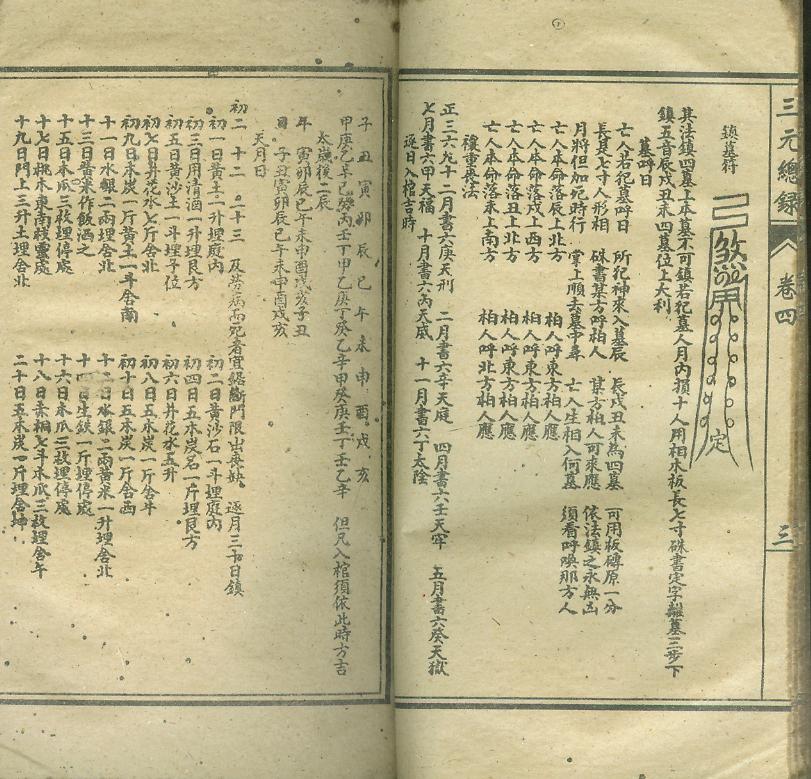 三元總録
卷四
三
鎮墓符
定
其法鎮四墓上本墓不可鎮若犯墓人月內損十人用柏木板長七寸硃書定字離墓三步下
鎮五音辰戌丑未四墓位上大利
墓呼日
亡人若犯墓呼日 所犯神來入墓辰 辰戌丑未為四墓 可用板磚原一分
長是七寸人形相 硃書某方呼柏人 某方柏人可來應 依法鎮之永無凶
月將但加死時行 掌上順去墓中尋 亡人生相入何墓 須看呼喚那方人
亡人本命落辰上北方 柏人呼東方柏人應
亡人本命落戌上西方 柏人呼東方柏人應
亡人本命落丑上北方 柏人呼東方柏人應
亡人本命落未上南方 柏人呼北方柏人應
禳重喪法
正三六九十二月書六庚天刑 二月書六辛天庭 四月書六壬天牢 五月書六癸天獄
七月書六甲天福 十月書六丙天威 十一月書六丁太陰
逐日入棺吉時
子丑寅卯辰巳午未申酉戌亥
甲庚乙辛巳癸丙壬丁甲乙庚丁癸乙辛甲癸庚壬丁壬乙辛 但凡入棺須依此時方吉
太歲後二辰
年 寅卯辰巳午未申酉戌亥子丑
日 子丑寅卯辰巳午未申酉戌亥
天月日
初二 十二 二十三 及勞病而死者宜鋸斷門限出喪缺 逐月三十日鎮
初一日黃土一升埋庭內 初二日黃沙石一斗埋庭內
初三日用清酒一升埋艮方 初四日五木炭名一斤埋艮方
初五日黃沙土一斗埋子位 初六日井花水五升
初七日井花水七斤舍北 初八日五木炭一斤舍午
初九日木炭一斤黃土一斗舍南 初十日五木炭一斤舍西
十一日水銀二兩埋舍北 十二日水銀二兩黃米一升埋舍北
十三日黃米作飯酒之 十四日生鉄一斤埋停處
十五日木瓜三枚埋停處 十六日木瓜三枚埋停處
十七日桃木東南枝靈處 十八日桑桐七斗木瓜三枚埋舍午
十九日門上三升土埋舍北 二十日五木炭一斤埋舍坤